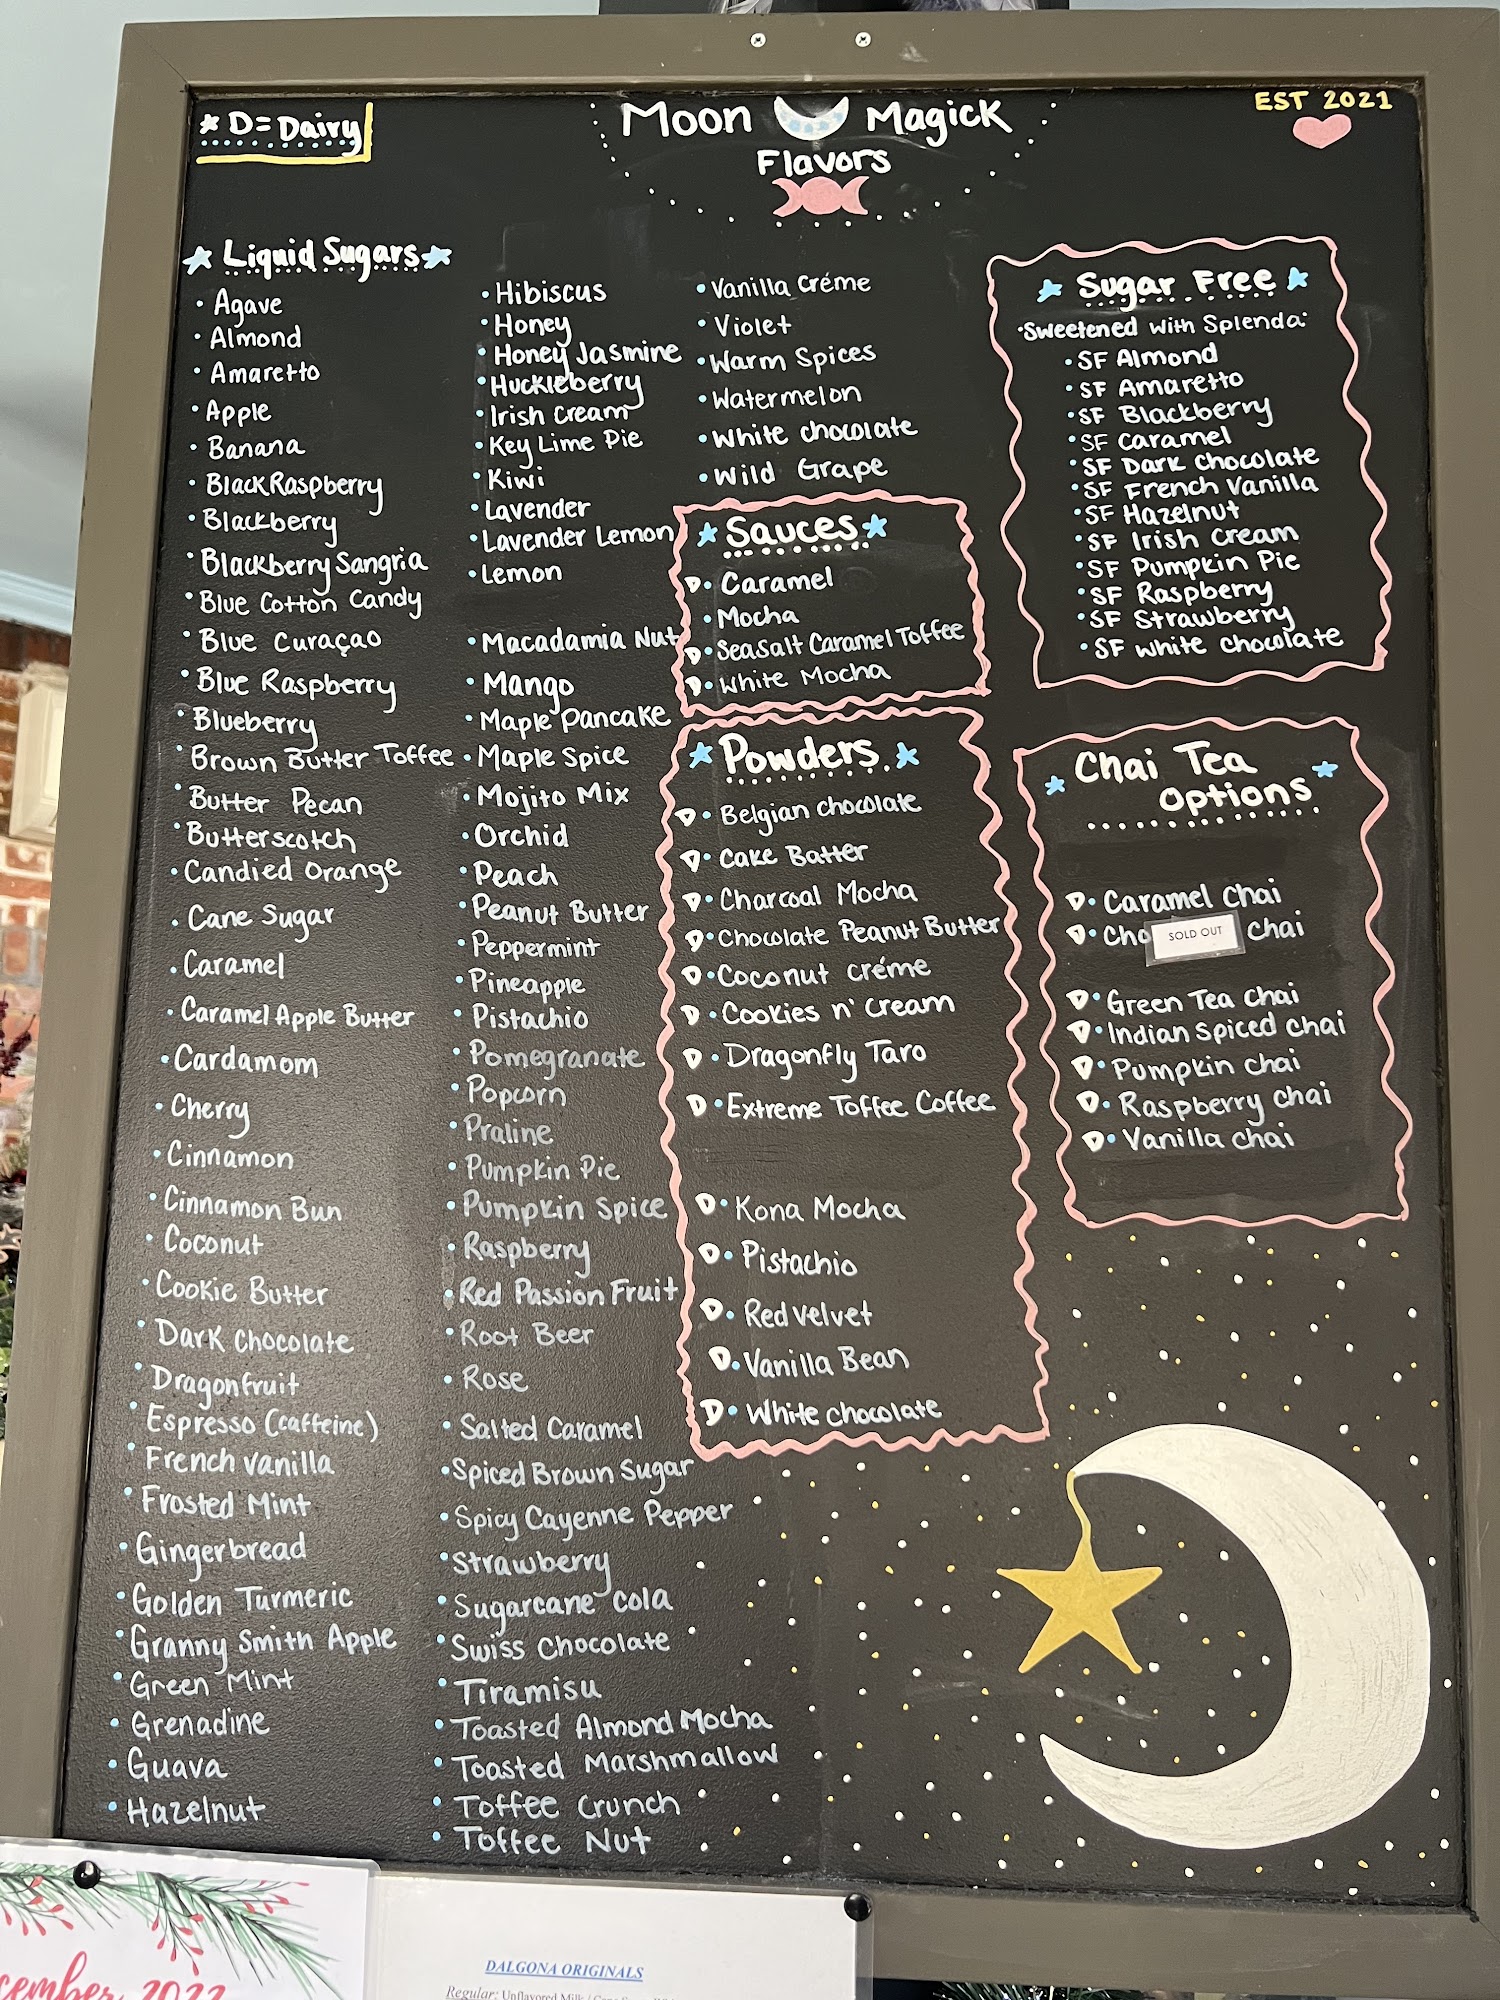 * D = Dairy
Moon Magick
Flavors
EST 2021
Liquid Sugars
• Agave
• Almond
• Amaretto
• Apple
• Banana
• Black Raspberry
• Blackberry
• Blackberry Sangria
• Blue Cotton Candy
• Blue Curaçao
• Blue Raspberry
• Blueberry
• Brown Butter Toffee
• Butter Pecan
• Butterscotch
• Candied Orange
• Cane Sugar
• Caramel
• Caramel Apple Butter
• Cardamom
• Cherry
• Cinnamon
• Cinnamon Bun
• Coconut
• Cookie Butter
• Dark Chocolate
• Dragonfruit
• Espresso (caffeine)
• French Vanilla
• Frosted Mint
• Gingerbread
• Golden Turmeric
• Granny Smith Apple
• Green Mint
• Grenadine
• Guava
• Hazelnut
• Hibiscus
• Honey
• Honey Jasmine
• Huckleberry
• Irish Cream
• Key Lime Pie
• Kiwi
• Lavender
• Lavender Lemon
• Lemon
• Macadamia Nut
• Mango
• Maple Pancake
• Maple Spice
• Mojito Mix
• Orchid
• Peach
• Peanut Butter
• Peppermint
• Pineapple
• Pistachio
• Pomegranate
• Popcorn
• Praline
• Pumpkin Pie
• Pumpkin Spice
• Raspberry
• Red Passion Fruit
• Root Beer
• Rose
• Salted Caramel
• Spiced Brown Sugar
• Spicy Cayenne Pepper
• Strawberry
• Sugarcane Cola
• Swiss Chocolate
• Tiramisu
• Toasted Almond Mocha
• Toasted Marshmallow
• Toffee Crunch
• Toffee Nut
• Vanilla Créme
• Violet
• Warm Spices
• Watermelon
• White Chocolate
• Wild Grape
Sauces
D • Caramel
• Mocha
D • Seasalt Caramel Toffee
D • White Mocha
Powders
D • Belgian Chocolate
D • Cake Batter
D • Charcoal Mocha
D • Chocolate Peanut Butter
D • Coconut Créme
D • Cookies n' Cream
D • Dragonfly Taro
D • Extreme Toffee Coffee
D • Kona Mocha
D • Pistachio
D • Red Velvet
D • Vanilla Bean
D • White Chocolate
Sugar Free
"Sweetened with Splenda"
• SF Almond
• SF Amaretto
• SF Blackberry
• SF Caramel
• SF Dark Chocolate
• SF French Vanilla
• SF Hazelnut
• SF Irish Cream
• SF Pumpkin Pie
• SF Raspberry
• SF Strawberry
• SF White Chocolate
Chai Tea
Options
D • Caramel Chai
D • Cho SOLD OUT Chai
D • Green Tea Chai
D • Indian Spiced Chai
D • Pumpkin Chai
D • Raspberry Chai
D • Vanilla Chai
2022
DALGONA ORIGINALS
Regular: Unflavored Milk /